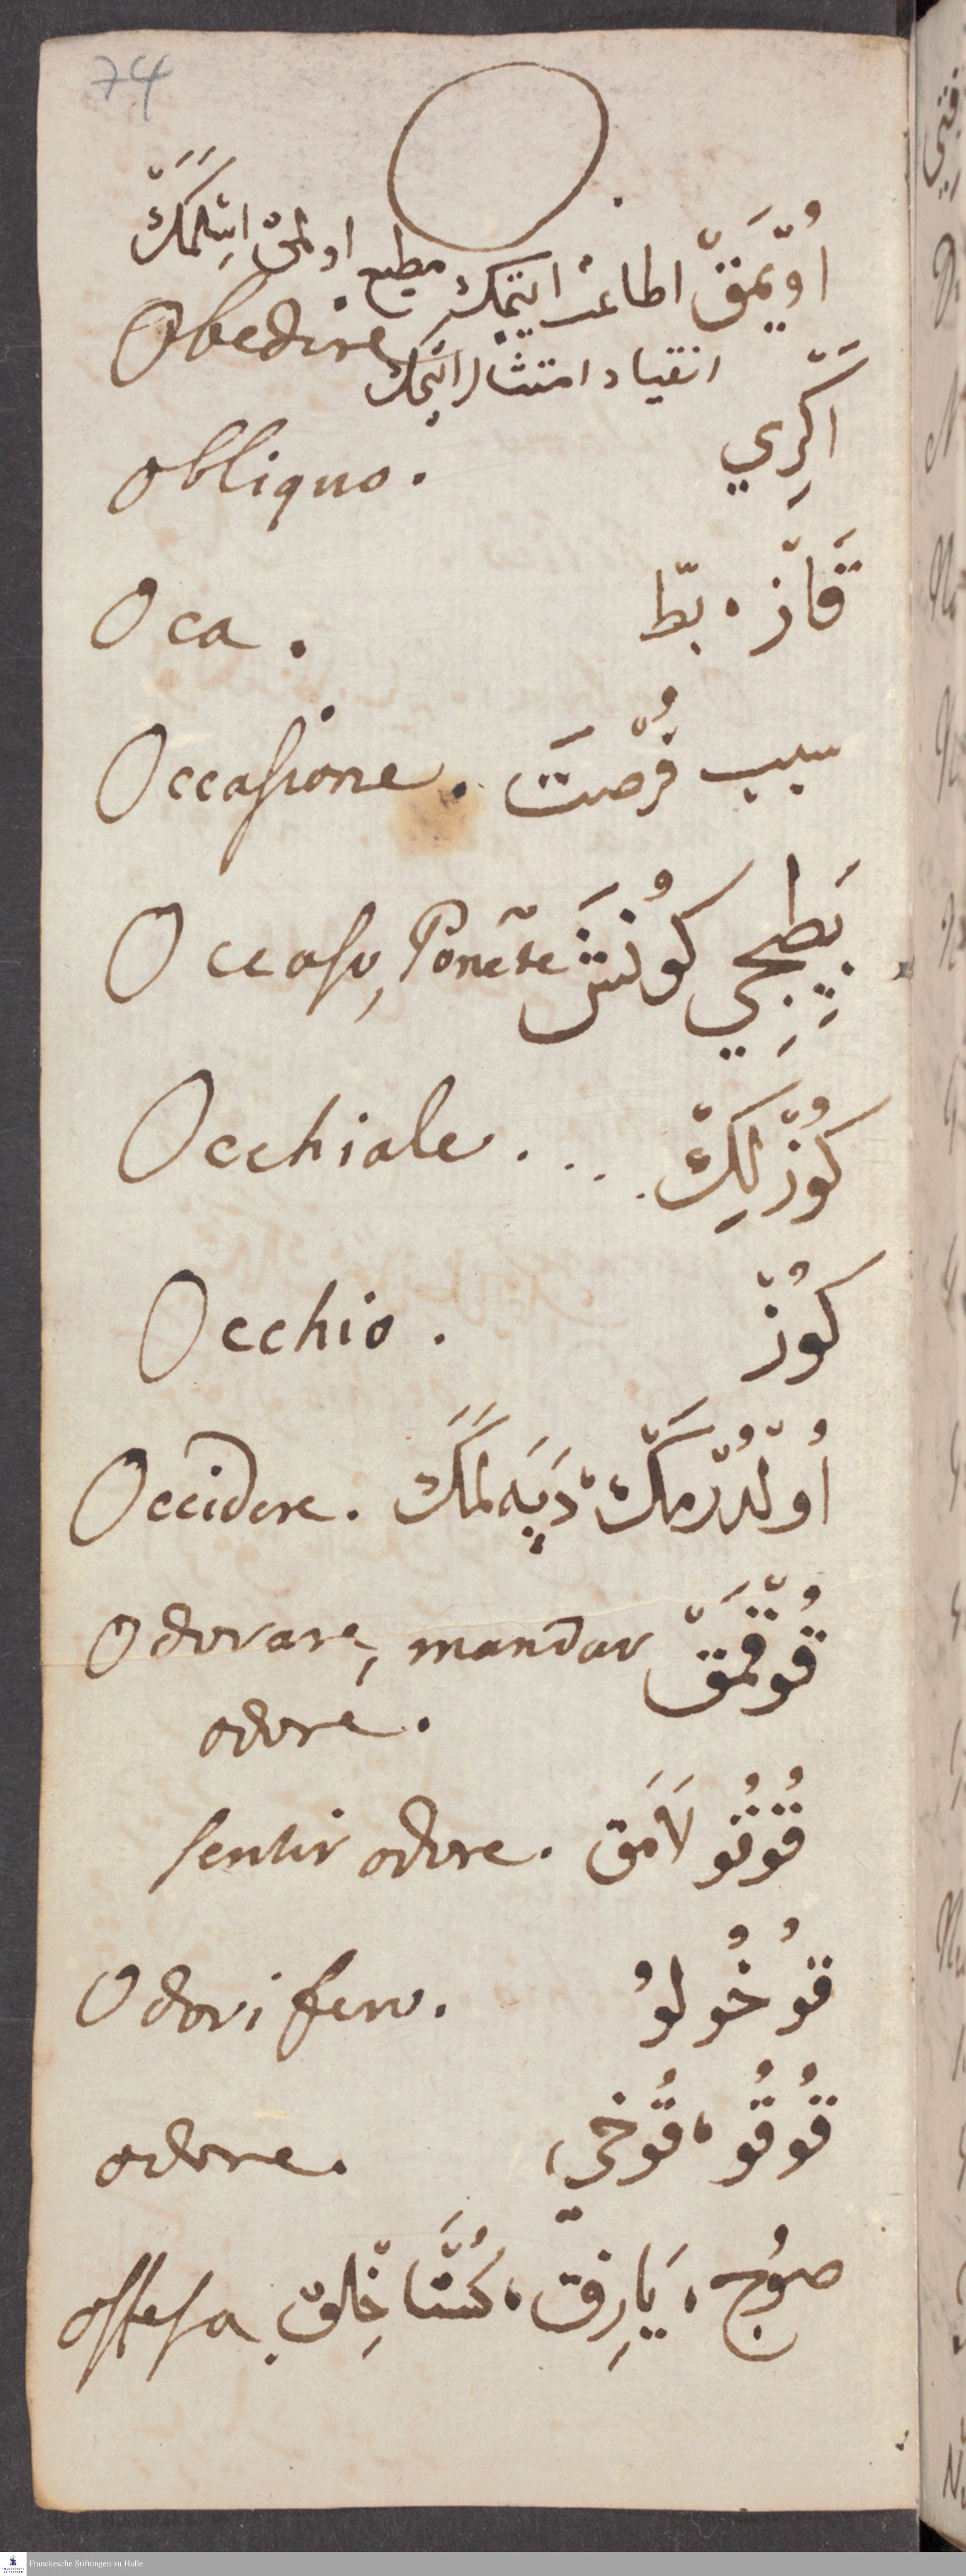 74
O.
Obedire اُوّيْمَقّ اطاعت ايتمك مطيع اولمق ايتلمكّ
انقياد امتثال ايتمك
obliquo. اَكّرِي
Oca. قَازْ، بطّ
Occasione. سبب فُرْصَتْ
Occaso, Ponẽte بَطِيجِي كُونَشْ
Occhiale. . . . كُوزْلِكْ
Occhio. كُوزْ
Occidere. اُولْدُرْمَكّ، دَپَه لَمَكْ
Odorare, mandar قُوقْمَقّ
odore.
sentir odore. قُوقُو لَامَق
Odorifero. قوُخُو لوُ
odore. قُوقُو، قُوخي،
offesa صوُچ، يَارِلق، كُسْتَاخْلِقْ
Franckesche Stiftungen zu Halle